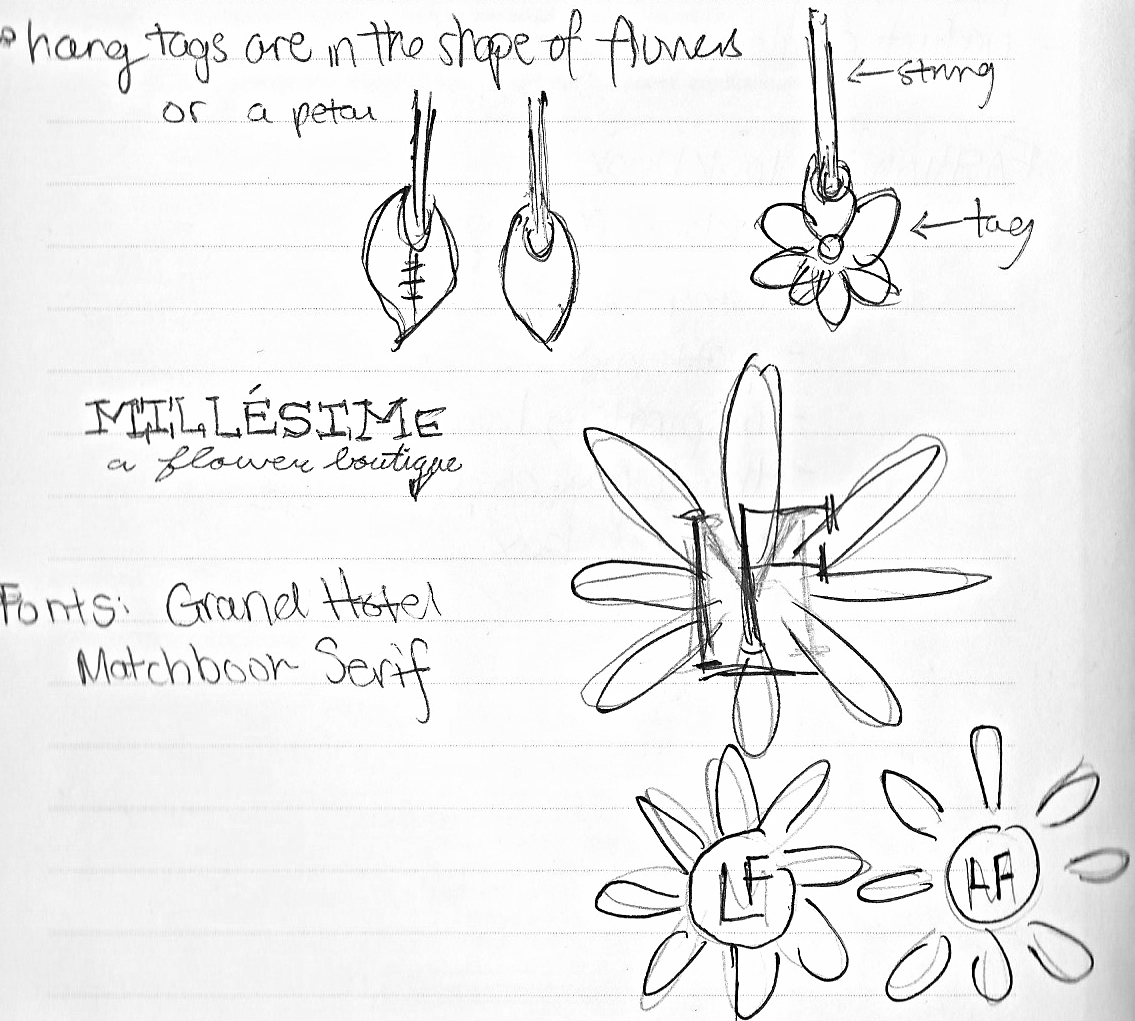 hang tags are in the shape of flowers
or a petal
← string
← tag
MILLÉSIME
a flower boutique
Fonts: Grand Hotel
Matchbook Serif
LF
LF
AA